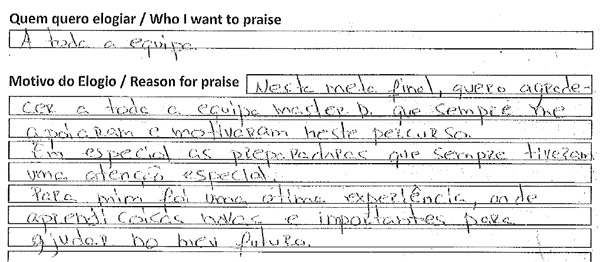 Quem quero elogiar / Who I want to praise
A toda a equipa.
Motivo do Elogio / Reason for praise Nesta meta final, quero agrade-
cer a toda a equipa Master.D. que sempre me
apoiaram e motivaram neste percurso.
Em especial as preparadoras que sempre tiveram
uma atenção especial.
Para mim foi uma ótima experiência, onde
aprendi coisas novas e importantes para
ajudar no meu futuro.